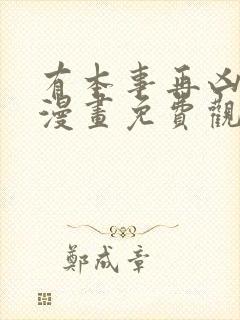 有本事再凶
漫畫免費觀
鄭成章